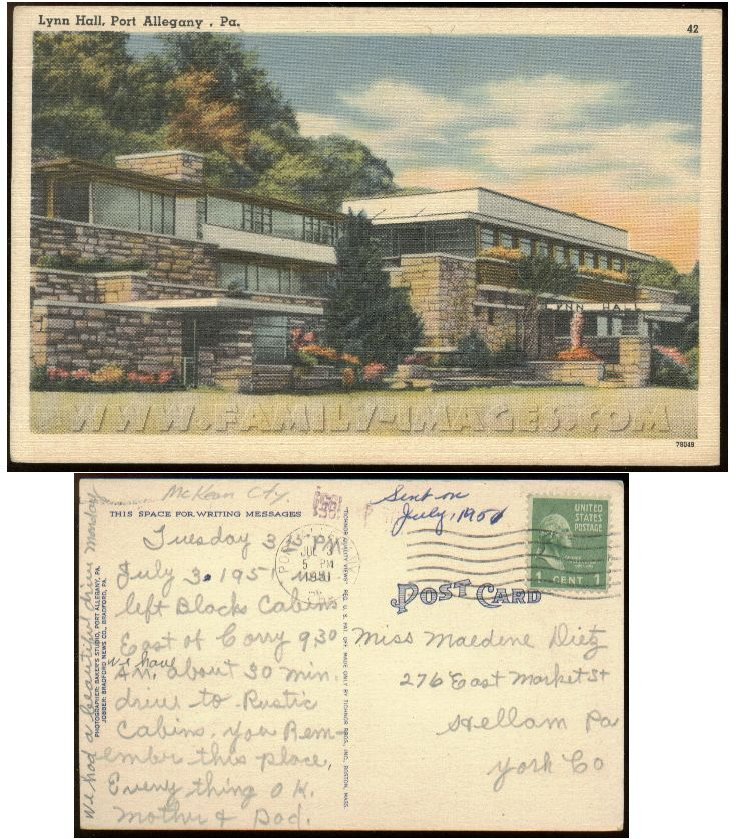 Lynn Hall, Port Allegany, Pa.
42
LYNN HALL
WWW.FAMILY-IMAGES.COM
78049
McKean Cty.
THIS SPACE FOR WRITING MESSAGES
Tuesday 3,15 PM
July 3. 1951
left Blocks Cabins
East of Corry 9,30
we have
AM, about 30 min.
drive to Rustic
Cabins, you Rem-
ember this place,
Every thing O K.
Mother & Dad.
We had a beautiful drive Monday
PHOTOGRAPHER: BAKER'S STUDIO, PORT ALLEGANY, PA.
JOBBER: BRADFORD NEWS CO., BRADFORD, PA.
TICHNOR QUALITY VIEWS REG. U. S. PAT. OFF. MADE ONLY BY TICHNOR BROS., INC., BOSTON, MASS.
Sent on
July, 1951
JUL 3
5 PM
1951
UNITED
STATES
POSTAGE
1 CENT 1
POST CARD
Miss Maedene Dietz
276 East Market St
Hellam Pa
York Co